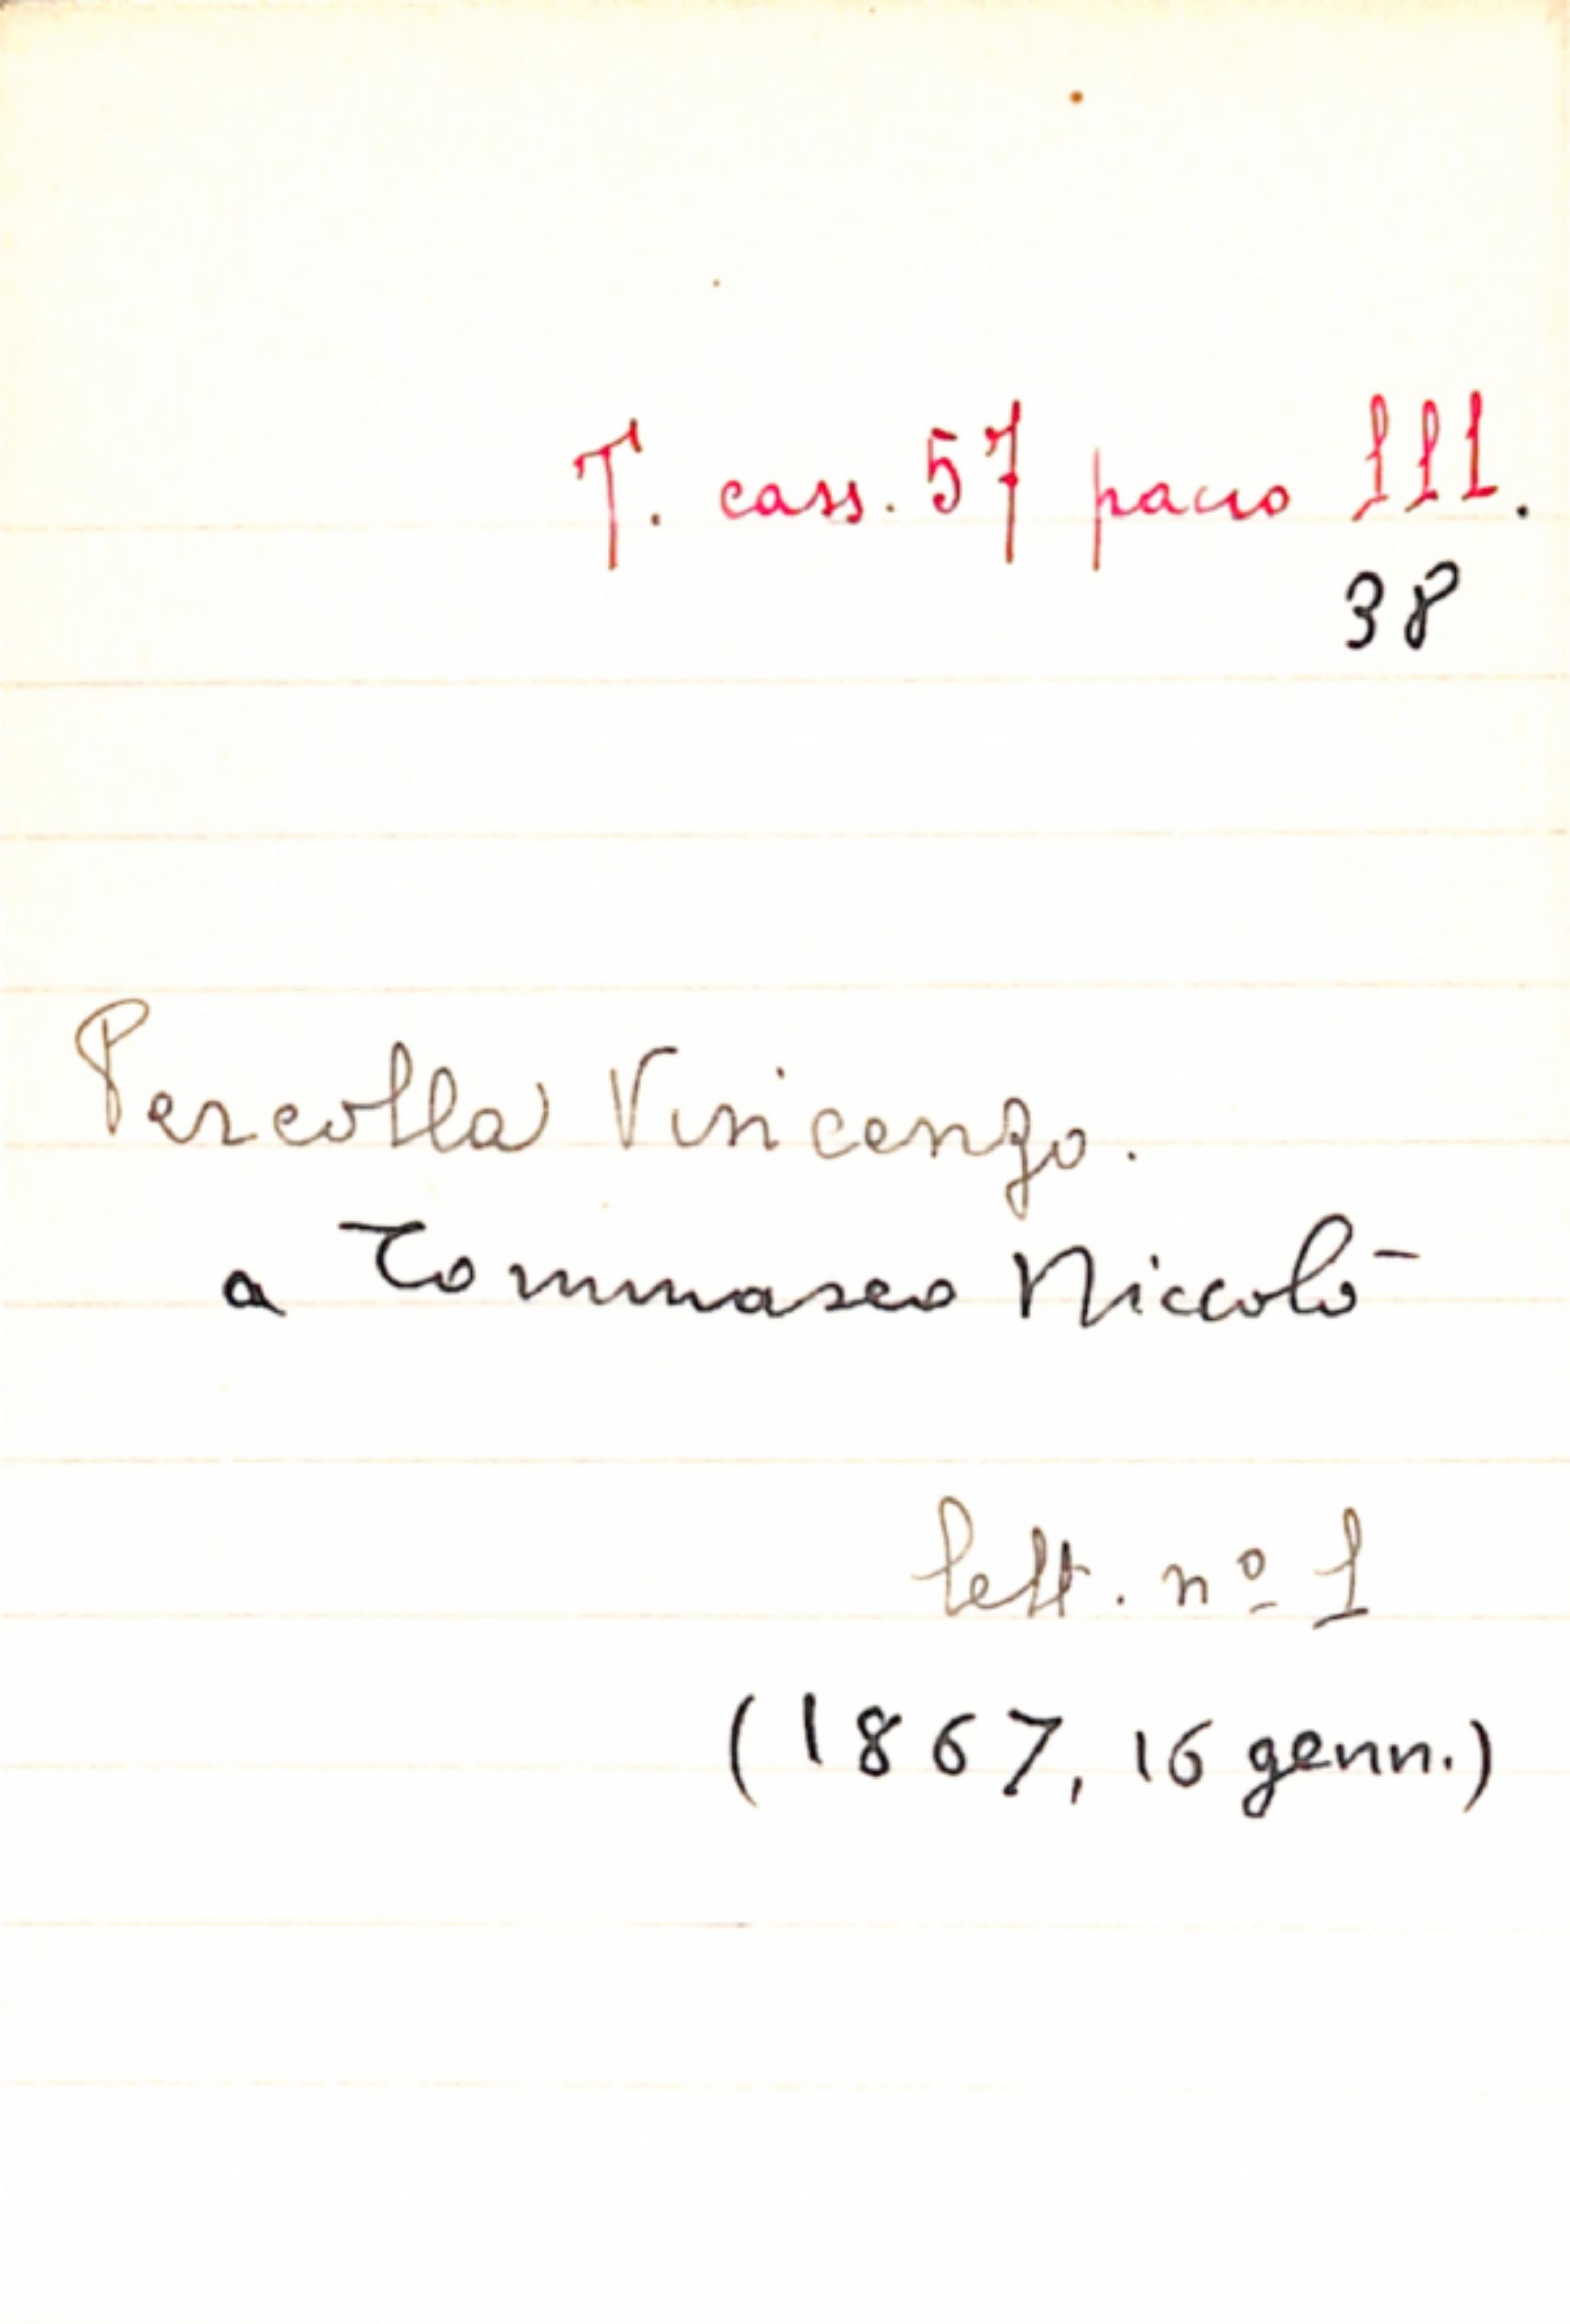 T. cass. 57 pacco III.
38
Percolla Vincenzo.
a Tommaseo Niccolò
lett. nº 1
(1867, 16 genn.)